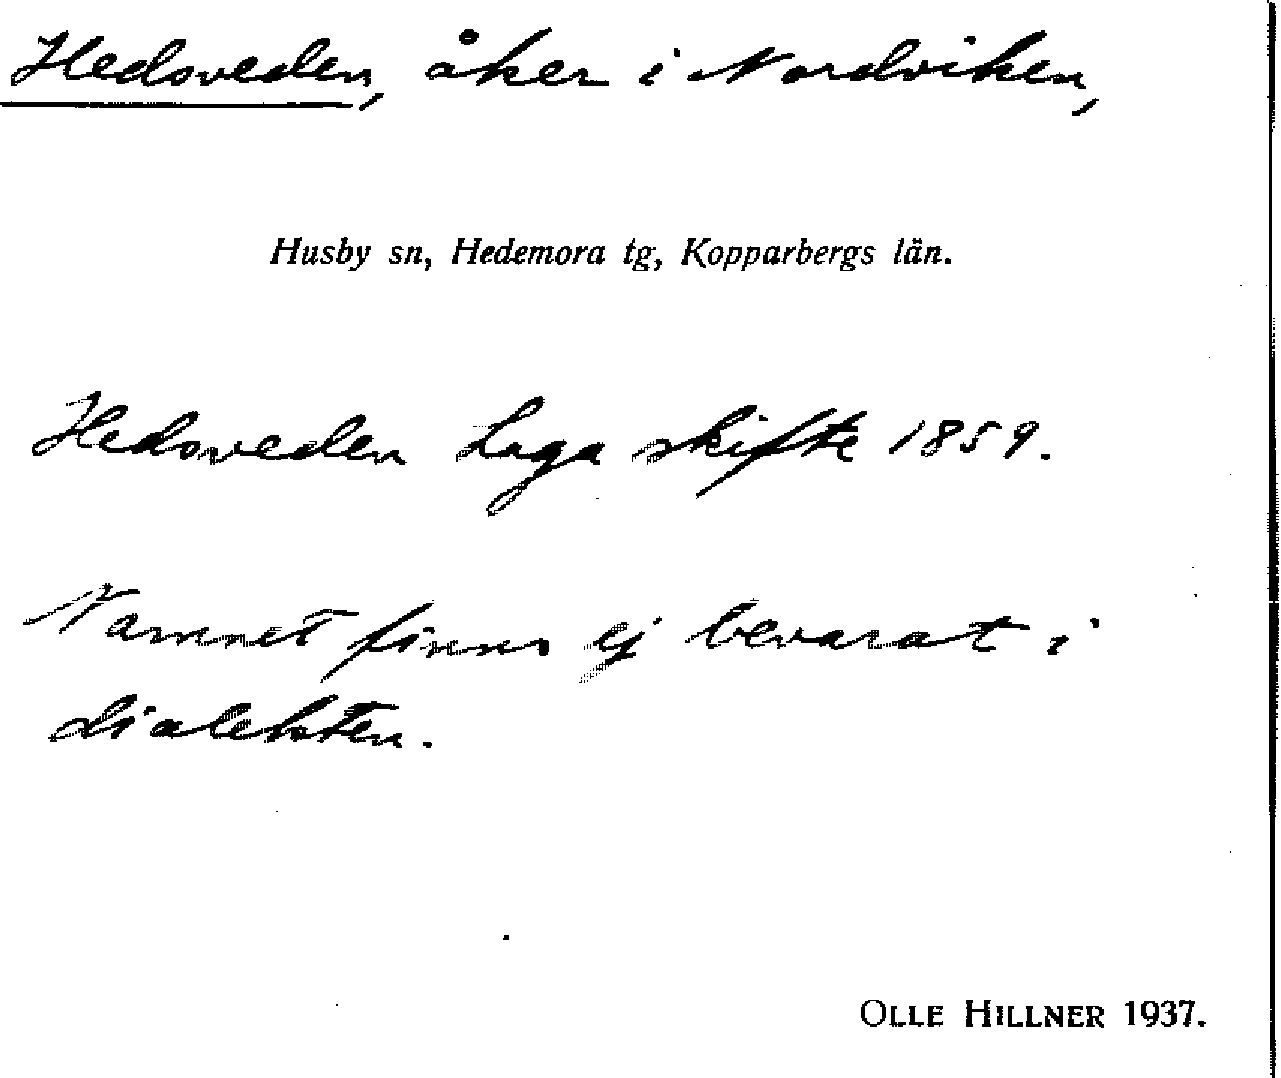 Hedsveden, åker i Nordviken,
Husby sn, Hedemora tg, Kopparbergs län.
Hedsveden Laga skifte 1859.
Namnet finns ej bevarat i
dialekten.
OLLE HILLNER 1937.